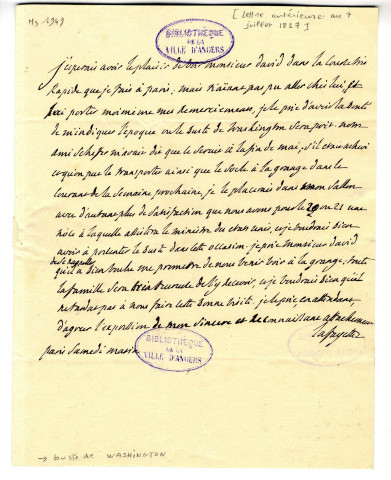 Ms 1949
[Lettre antérieure au 7
juillet 1827]
BIBLIOTHÈQUE
DE LA
VILLE D'ANGERS
j'esperois avoir le plaisir de voir monsieur david dans la course très
rapide que je fais à paris; mais n'aïant pas pu aller chez lui et
lui porter moi même mes remerciemens, je le prie d'avoir la bonté
de m'indiquer l'époque où le buste de Washington sera prêt. mon
ami Schefer m'avoit dit que ce seroit à la fin de mai; s'il étoit achevé
et qu'on put le transporter ainsi que le Socle à la grange dans le
courant de la semaine prochaine, je le placerois dans mon sallon
avec d'autant plus de satisfaction que nous avons pour le 20 ou 21 une
nôce à laquelle assistera le ministre des états unis, et je voudrois bien
avoir à présenter le buste dans cette occasion. je prie Monsieur david
qu'il a bien voulu me promettre de nous venir voir à la grange. toute
la famille sera très heureuse de l'y recevoir, et je voudrois bien qu'il
ne tardat pas à nous faire cette bonne visite. je le prie en attendant
d'agreer l'expression de mon sincere et reconnaissant attachement
Lafayette
paris Samedi matin
BIBLIOTHÈQUE
DE LA
VILLE D'ANGERS
→ buste de WASHINGTON